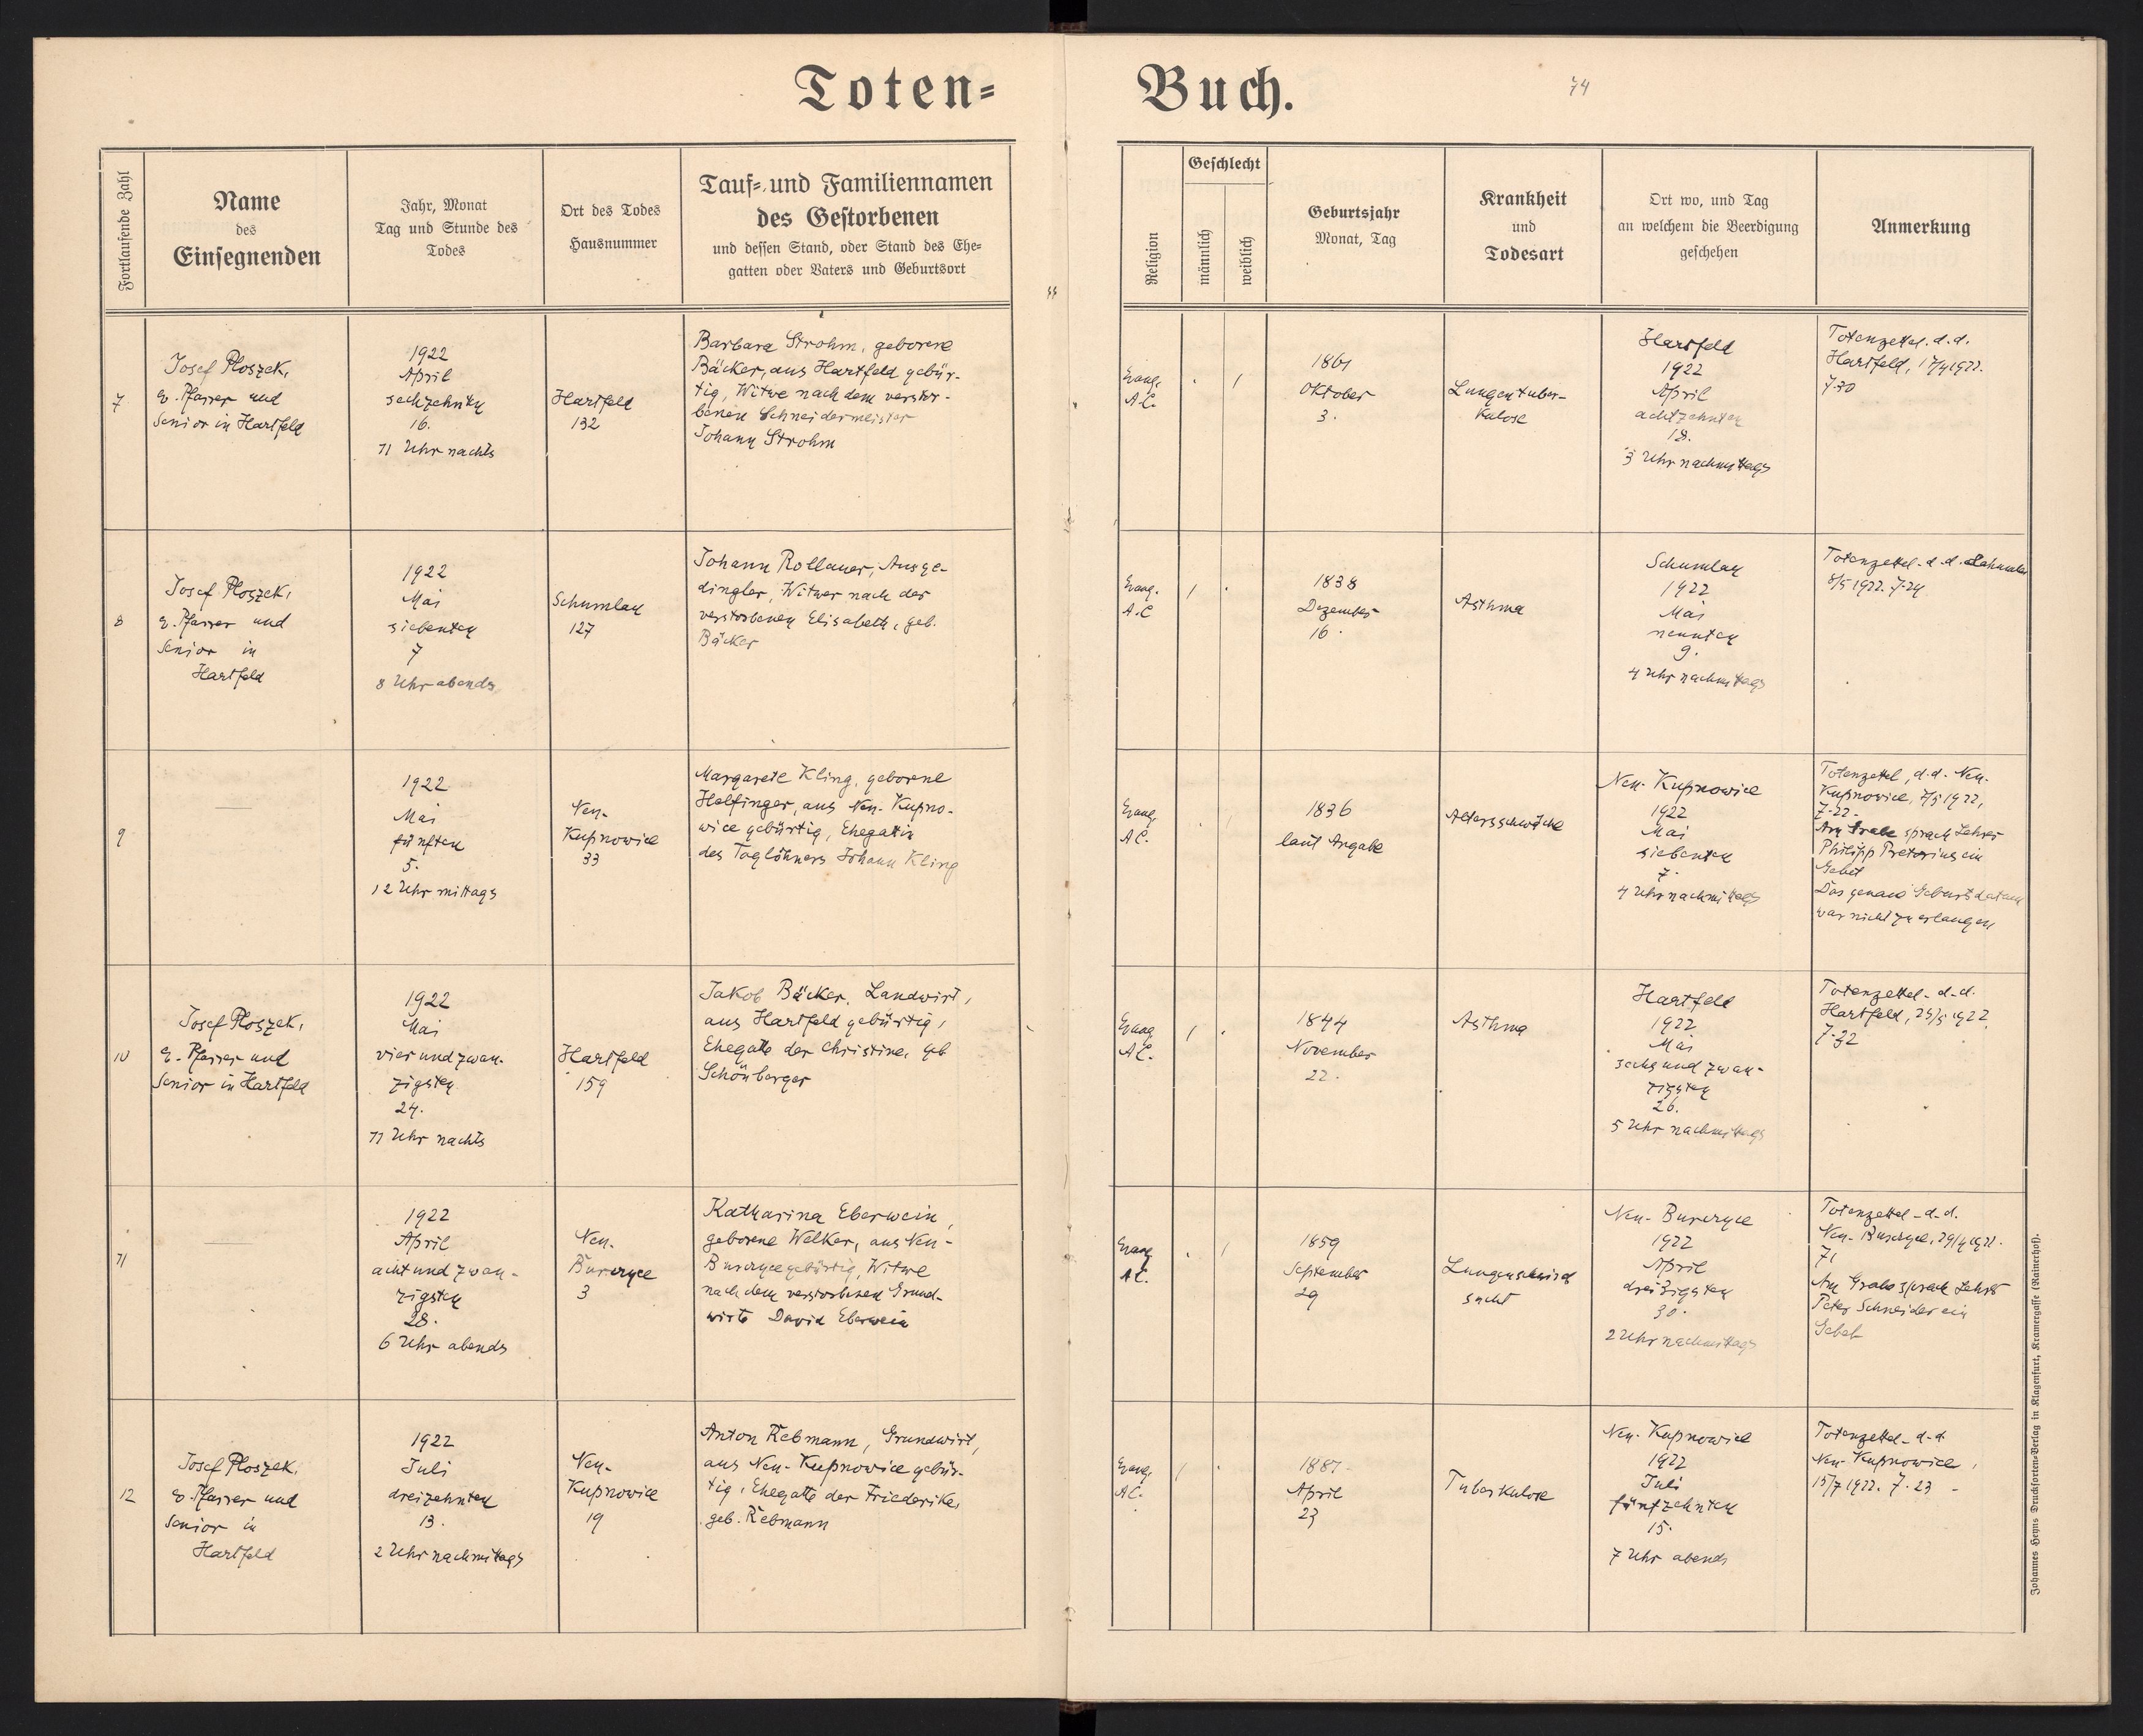 Toten=
Buch.
74
Fortlaufende Zahl
Name
des
Einsegnenden
Jahr, Monat
Tag und Stunde des
Todes
Ort des Todes
Hausnummer
Tauf= und Familiennamen
des Gestorbenen
und dessen Stand, oder Stand des Ehe=
gatten oder Vaters und Geburtsort
Religion
Geschlecht
männlich
weiblich
Geburtsjahr
Monat, Tag
Krankheit
und
Todesart
Ort wo, und Tag
an welchem die Beerdigung
geschehen
Anmerkung
7
Josef Ploszek,
ev. Pfarrer und
Senior in Hartfeld
1922
April
sechzehnten
16.
11 Uhr nachts
Hartfeld
132
Barbara Strohm, geborene
Bäcker, aus Hartfeld gebür-
tig, Witwe nach dem verstor-
benen Schneidermeister
Johann Strohm
Evang.
A.C.
1
1861
Oktober
3.
Lungentuber-
kulose
Hartfeld
1922
April
achtzehnten
18.
3 Uhr nachmittags
Totenzettel d.d.
Hartfeld, 17/4 1922.
7.30
8
Josef Ploszek,
ev. Pfarrer und
Senior in
Hartfeld
1922
Mai
siebenten
7
8 Uhr abends
Schumlau
127
Johann Rollauer, Ausge-
dingler, Witwer nach der
verstorbenen Elisabeth, geb.
Bäcker
Evang.
A.C
1
1838
Dezember
16.
Asthma
Schumlau
1922
Mai
neunten
9.
4 Uhr nachmittags
Totenzettel d.d.
8/5 1922. 7.24
9
1922
Mai
fünften
5.
12 Uhr mittags
Neu-
Kupnowice
33
Margarete Kling, geborene
Helfinger, aus Neu-Kupno-
wice gebürtig, Ehegattin
des Taglöhners Johann Kling
Evang.
A.C.
1
1836
laut Angabe
Altersschwäche
Neu-Kupnowice
1922
Mai
siebenten
7.
4 Uhr nachmittags
Totenzettel, d.d. Neu-
Kupnowice, 7/5 1922,
7.22.
Am Grabe sprach Lehrer
Philipp Pretorius ein
Gebet
Das genaue Geburtsdatum
war nicht zu erlangen
10
Josef Ploszek,
ev. Pfarrer und
Senior in Hartfeld
1922
Mai
vierundzwan-
zigsten
24.
11 Uhr nachts
Hartfeld
159
Jakob Bäcker, Landwirt,
aus Hartfeld gebürtig,
Ehegatte der Christine, geb
Schönberger
Evang
A.C.
1
1844
November
22.
Asthma
Hartfeld
1922
Mai
sechsundzwan-
zigsten
26.
5 Uhr nachmittags
Totenzettel d.d.
Hartfeld, 25/5 1922
7.32
11
1922
April
achtundzwan-
zigsten
28.
6 Uhr abends
Neu-
Burczyce
3
Katharina Eberwein,
geborene Welker, aus Neu-
Burczyce gebürtig, Witwe
nach dem verstorbenen Grund-
wirte David Eberwein
Evang
A.C.
1
1859
September
29
Lungenschwind
sucht
Neu-Burczyce
1922
April
dreißigsten
30.
2 Uhr nachmittags
Totenzettel d.d.
Neu-Burczyce, 29/4 1922.
71
Am Grabe sprach Lehrer
Peter Schneider ein
Gebet
12
Josef Ploszek,
ev. Pfarrer und
Senior in
Hartfeld
1922
Juli
dreizehnten
13.
2 Uhr nachmittags
Neu-
Kupnowice
19
Anton Rebmann, Grundwirt,
aus Neu-Kupnowice gebür-
tig, Ehegatte der Friederike,
geb. Rebmann
Evang.
A.C.
1
1887
April
23
Tuberkulose
Neu-Kupnowice
1922
Juli
fünfzehnten
15.
7 Uhr abends
Totenzettel d.d
Neu-Kupnowice,
15/7 1922. 7.23
Johannes Heyns Drucksorten=Verlag in Klagenfurt, Kramergasse (Rainerhof).